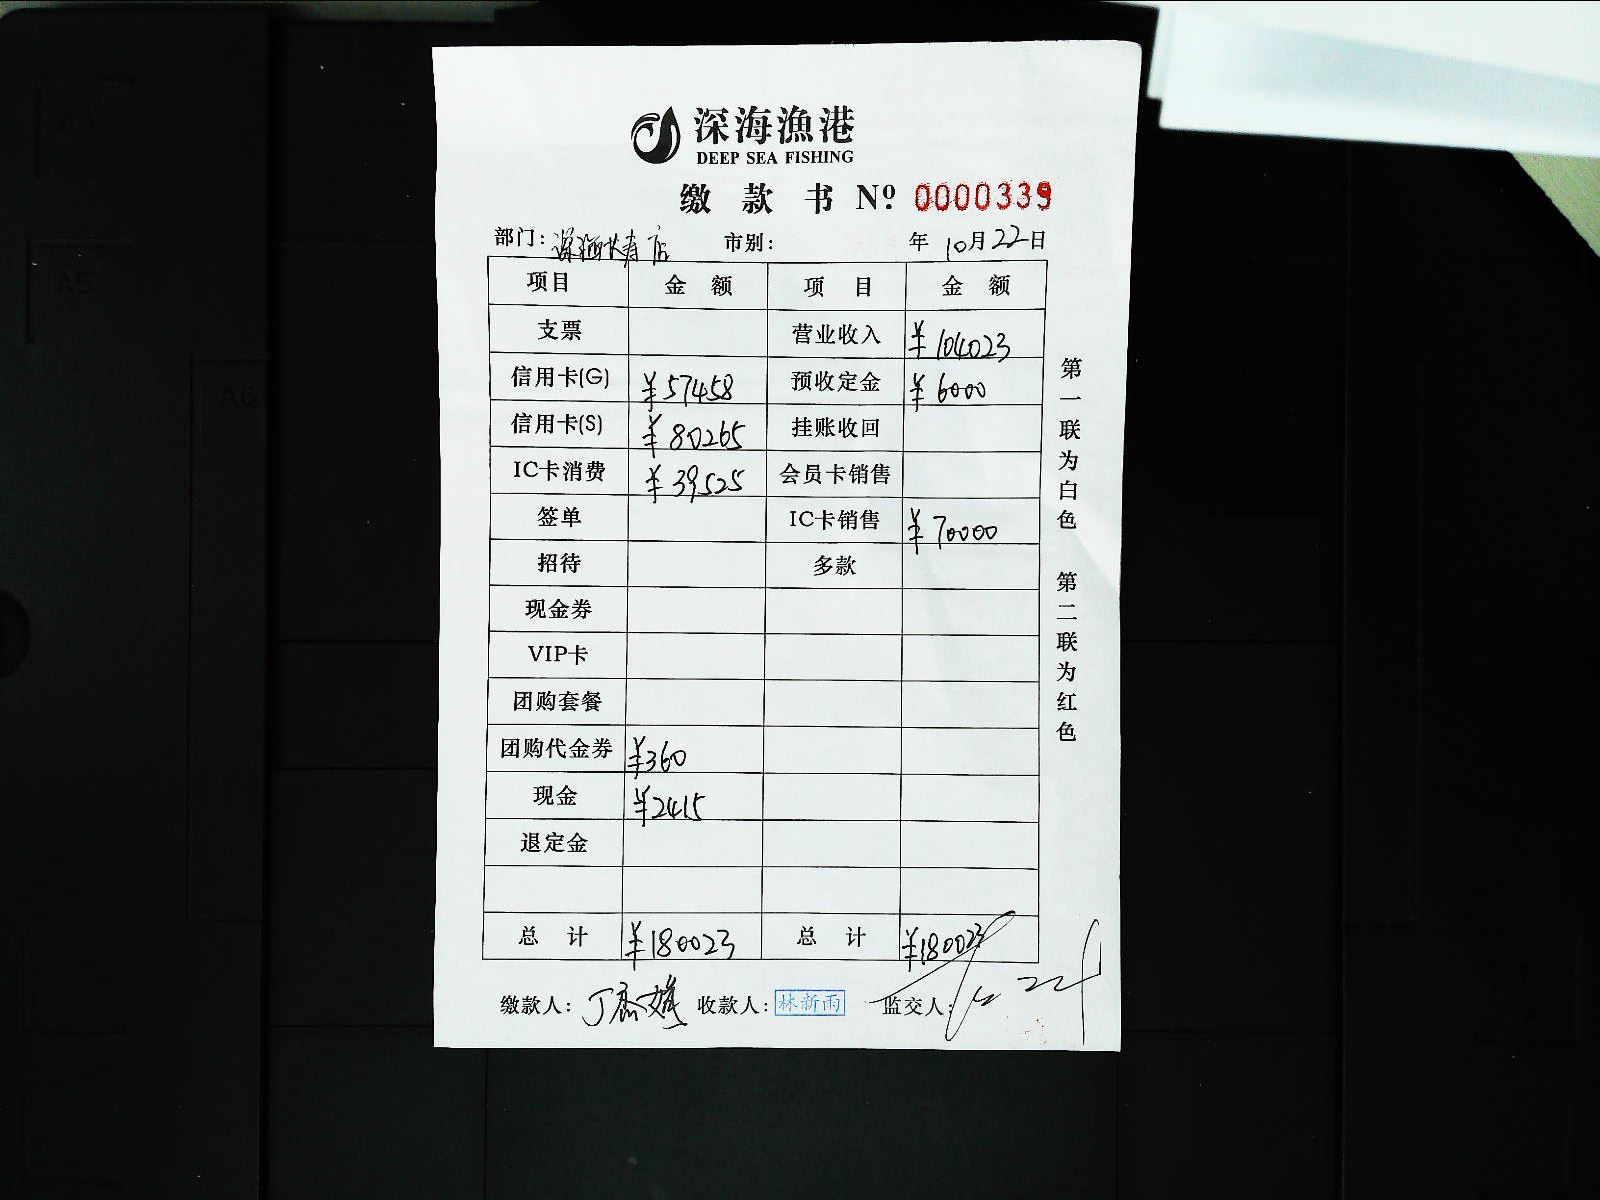 深海漁港
DEEP SEA FISHING
缴款书 Nº 0000339
部门: 深海长寿店 市别: 年 10月22日
项目 金额 项目 金额
支票 营业收入 ¥104023
信用卡(G) ¥57458 预收定金 ¥6000
信用卡(S) ¥80265 挂账收回
IC卡消费 ¥39525 会员卡销售
签单 IC卡销售 ¥70000
招待 多款
现金券
VIP卡
团购套餐
团购代金券 ¥360
现金 ¥2415
退定金
总计 ¥180023 总计 ¥180023
缴款人: 收款人: 林新雨 监交人:
第一联为白色 第二联为红色
A4
A5
A6